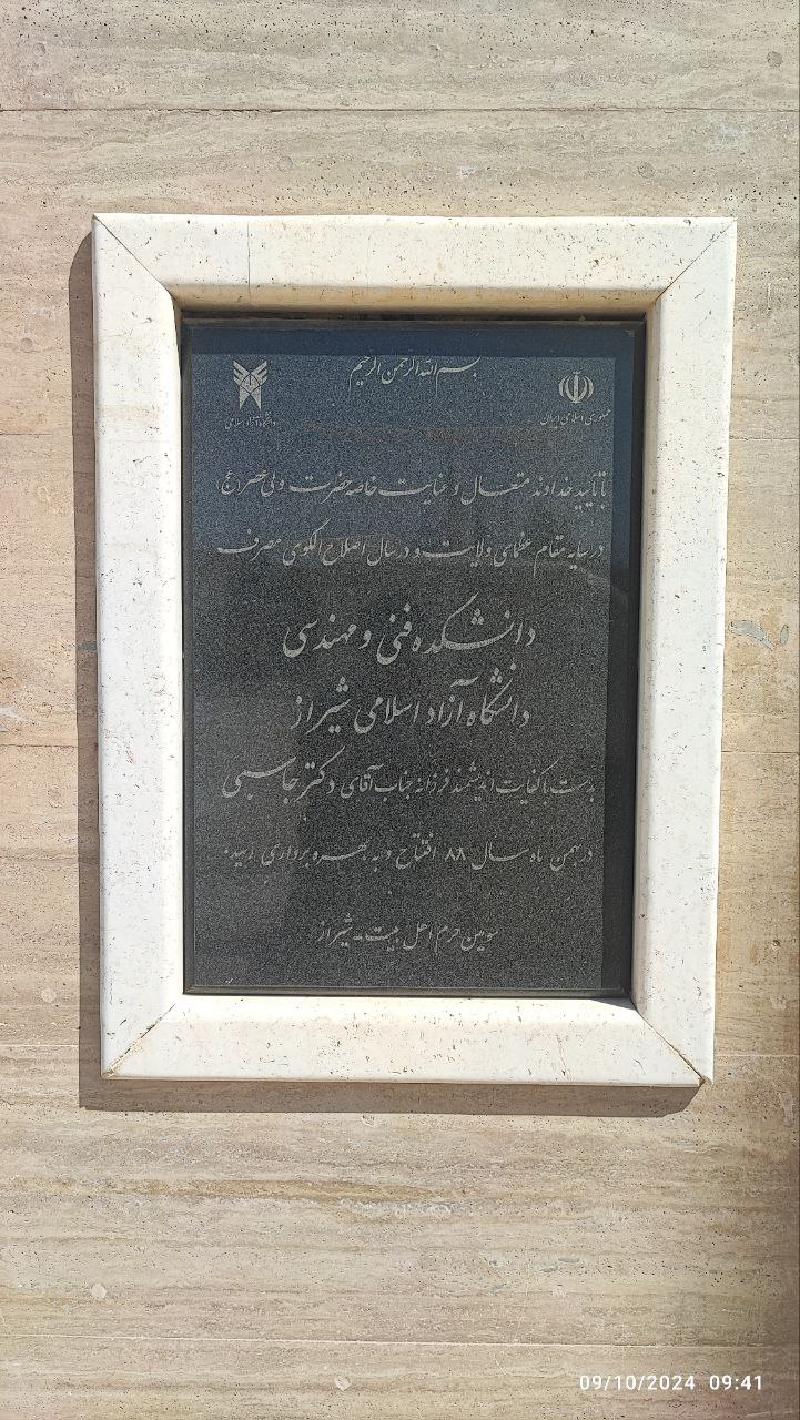 بسم الله الرحمن الرحیم
جمهوری اسلامی ایران
دانشگاه آزاد اسلامی
با تأیید خداوند متعال و عنایت خاصه حضرت ولی عصر (عج)
در سایه مقام عظمای ولایت و در سال اصلاح الگوی مصرف
دانشکده فنی و مهندسی
دانشگاه آزاد اسلامی شیراز
بدست با کفایت اندیشمند فرزانه جناب آقای دکتر جاسبی
در بهمن ماه سال ۸۸ افتتاح و به بهره برداری رسید.
سومین حرم اهل بیت - شیراز
09/10/2024 09:41